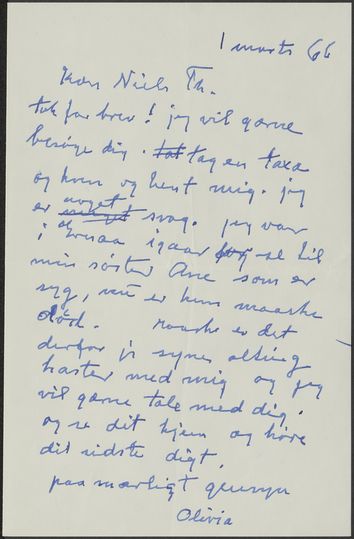 1 marts 66
Kære Niels Th.
tak for brev! jeg vil gærne
besøge dig. tag en taxa
og kom og hent mig. jeg
er noget svag. jeg var
i igaar se til
min søster Ane som er
syg, nu er hun maaske
død. maaske er det
derfor jeg synes alting
haster med mig og jeg
vil gærne tale med dig.
og se dit hjem og høre
dit sidste digt.
paa mærligt gensyn
Olivia